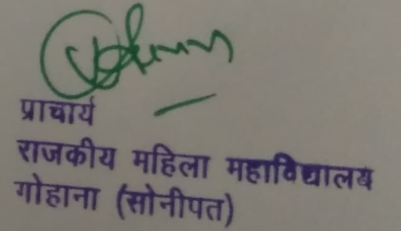 प्राचार्य
राजकीय महिला महाविद्यालय
गोहाना (सोनीपत)